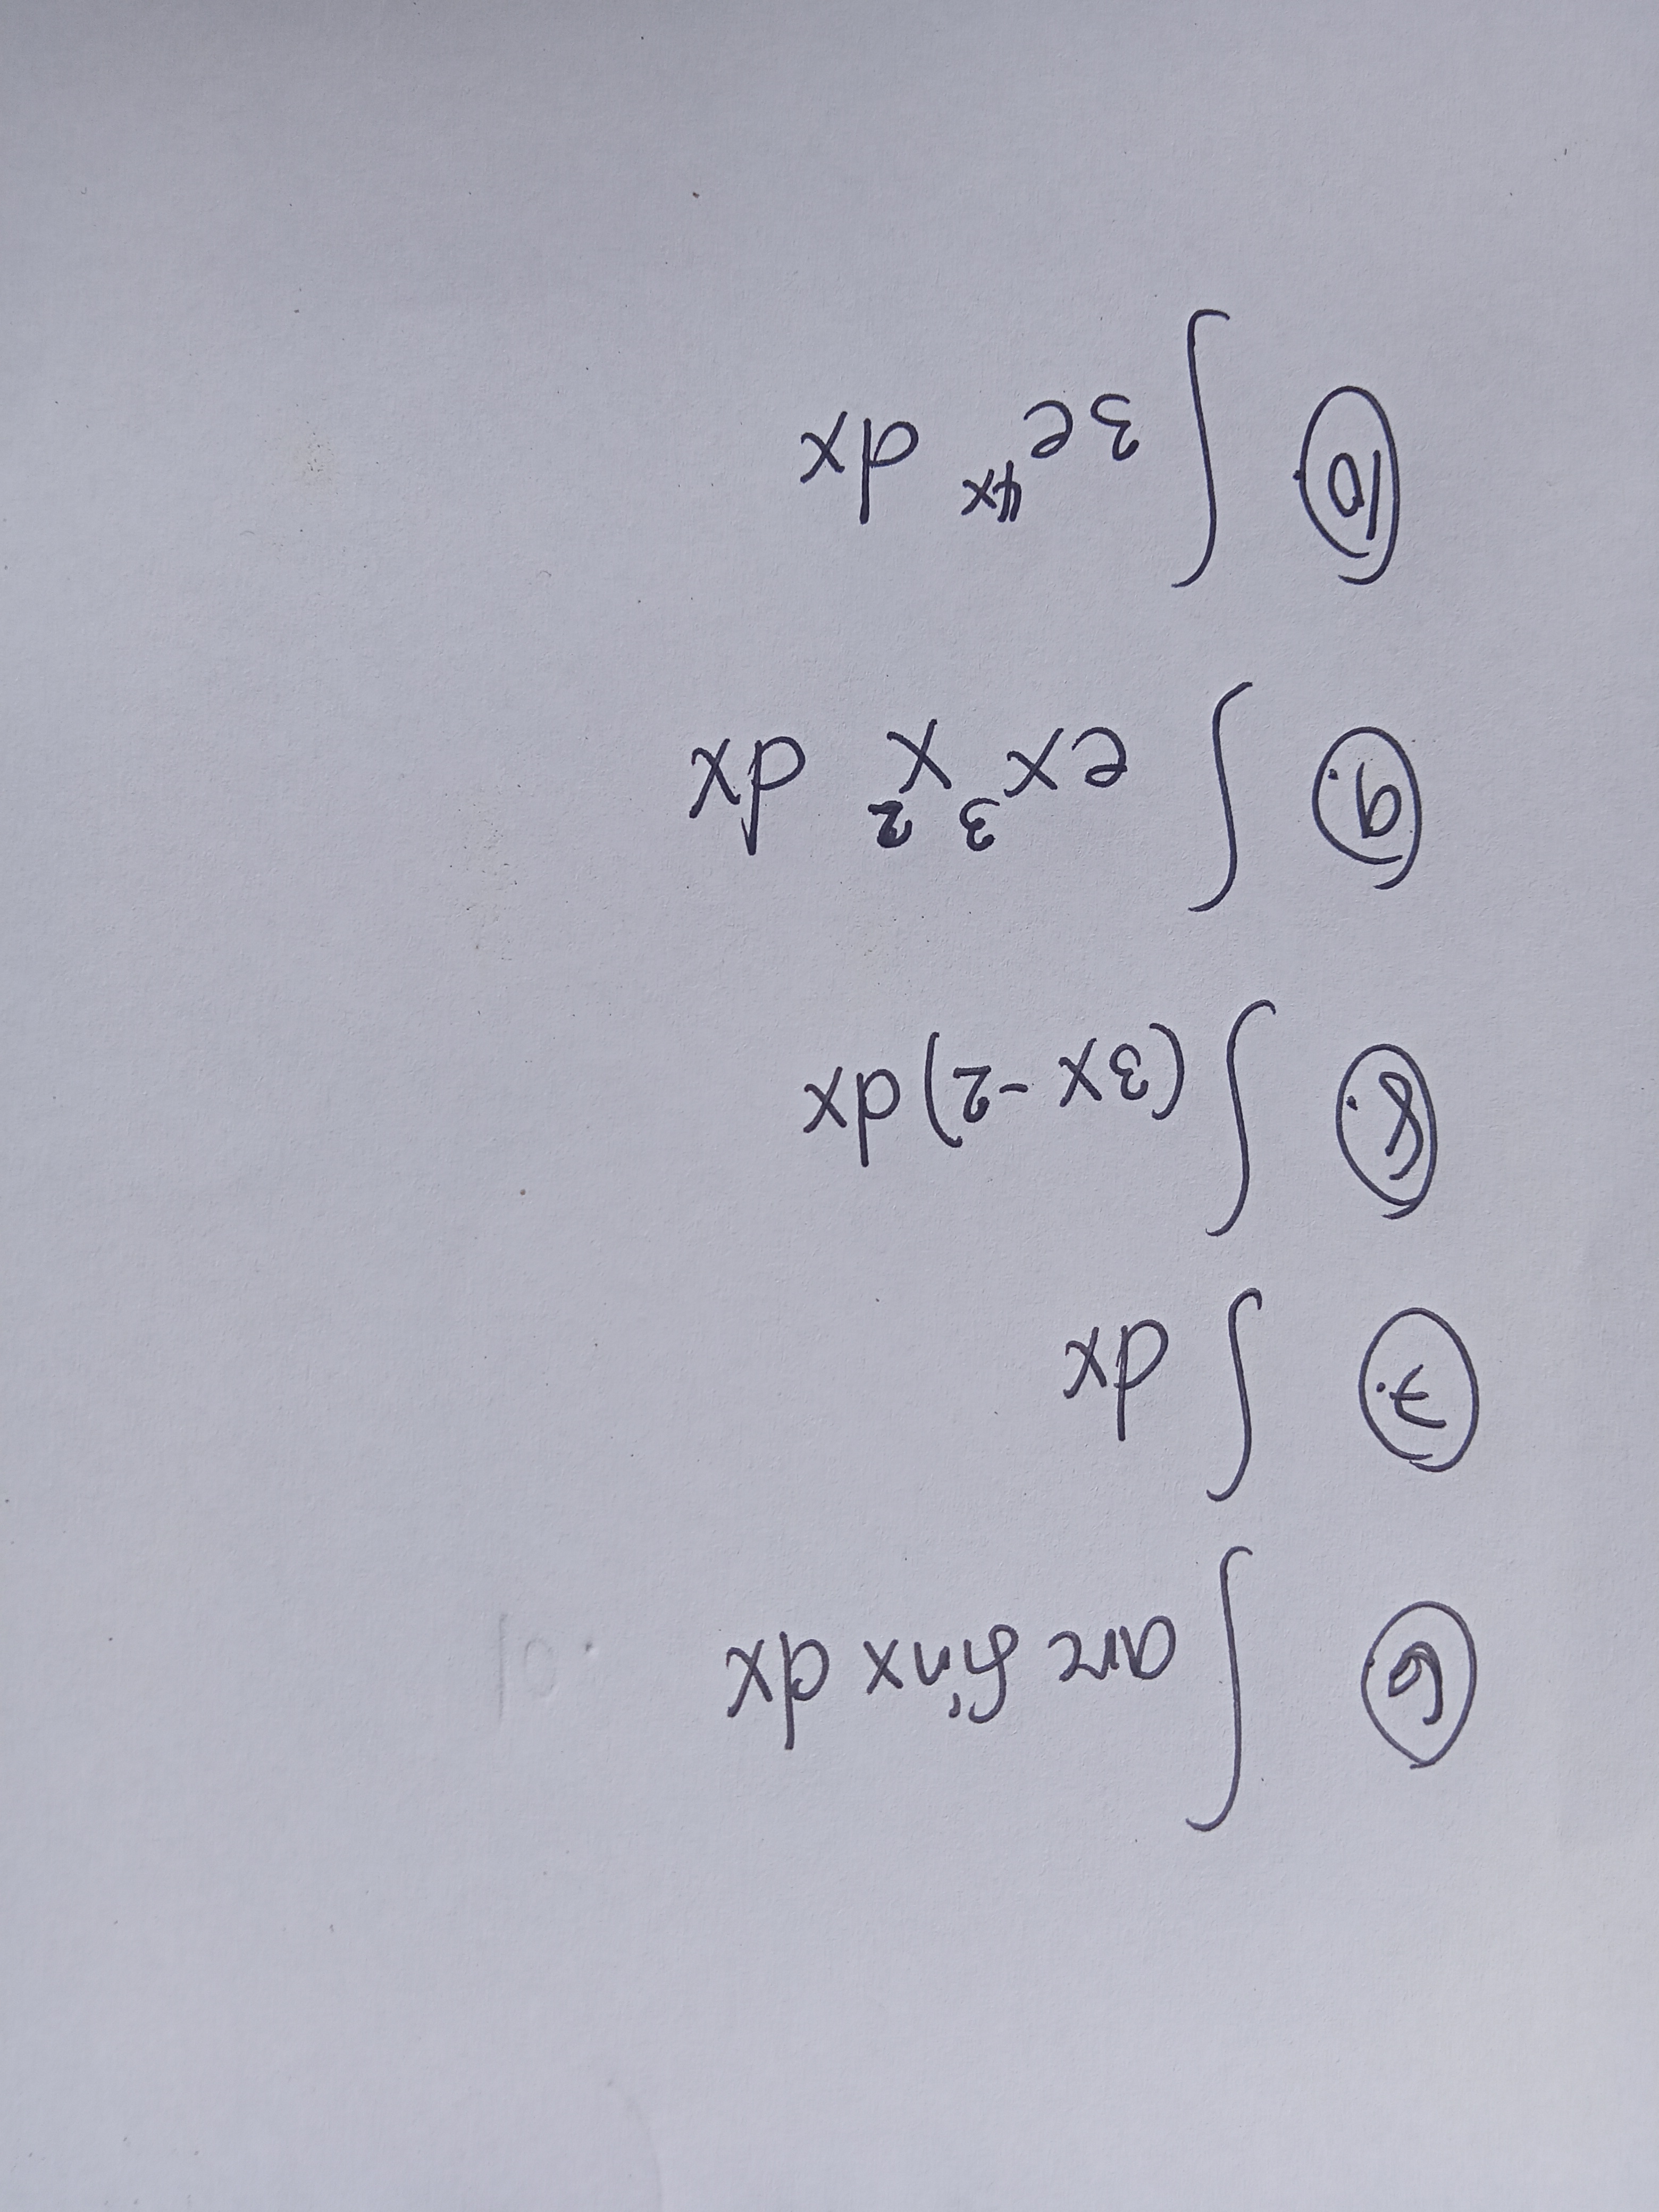 6. ∫ arc sin x dx
7. ∫ dx
8. ∫ (3x - 2) dx
9. ∫ ex³ x² dx
10. ∫ 3e⁴ˣ dx